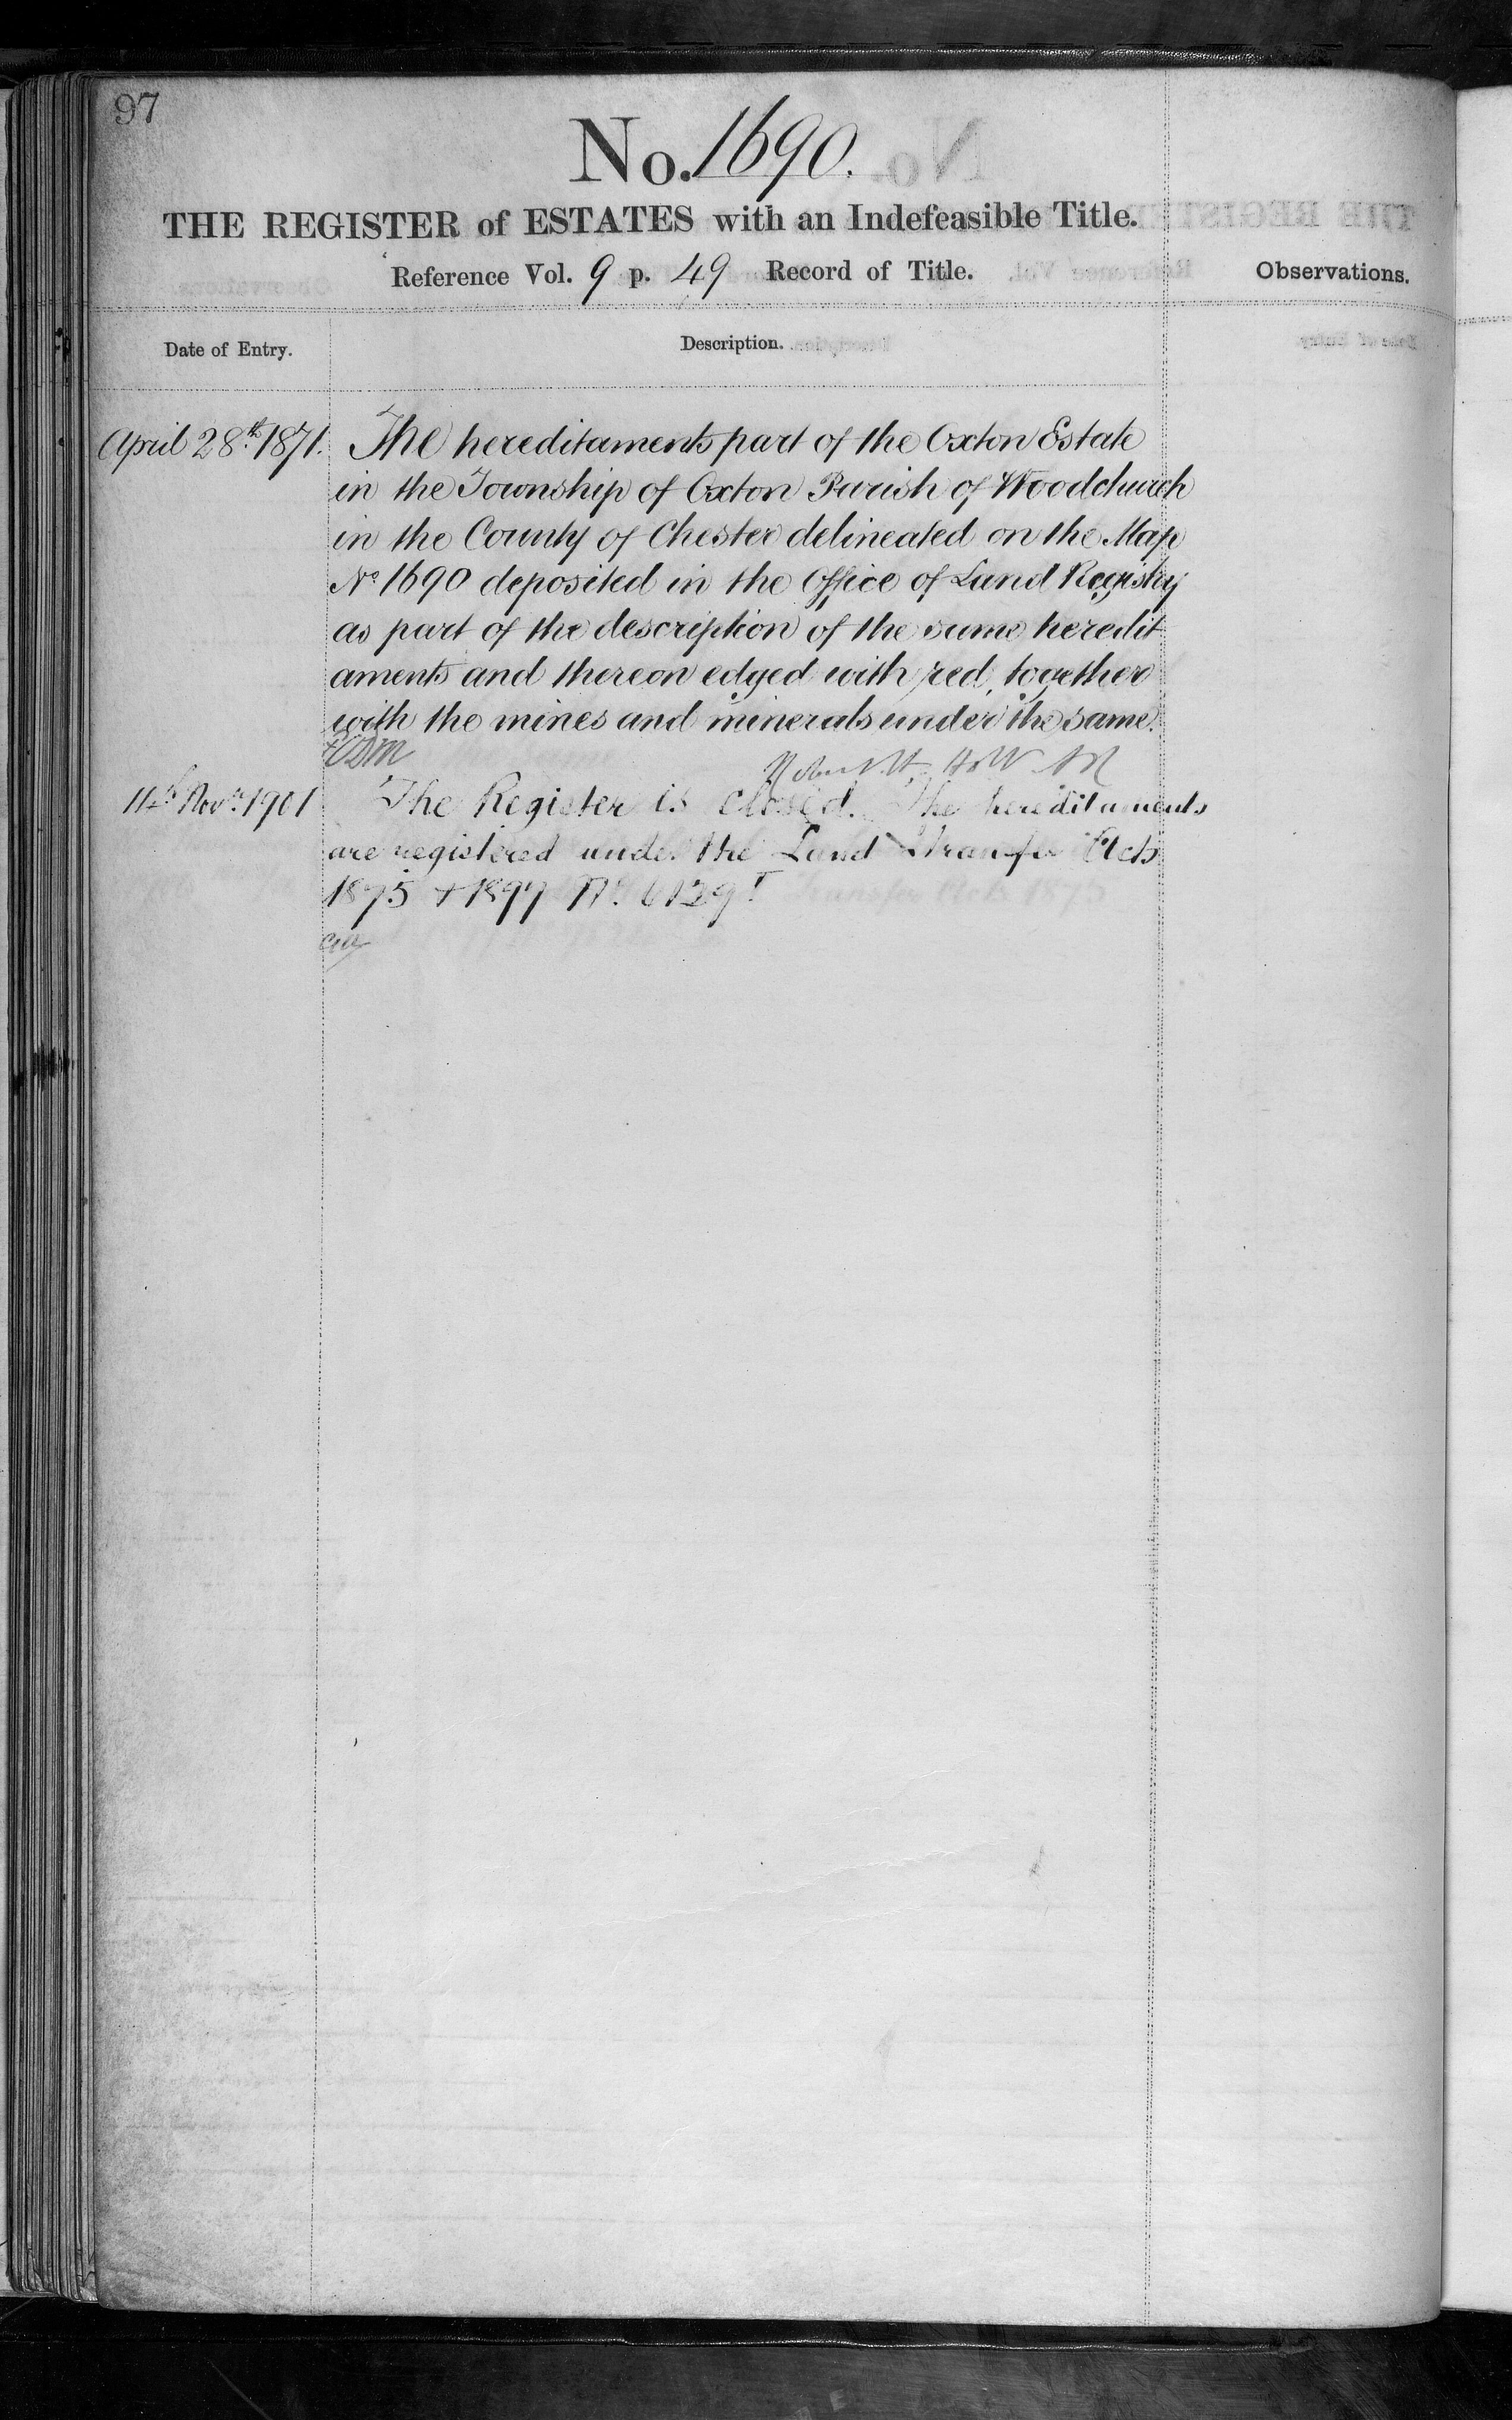 97
No. 1690.
THE REGISTER of ESTATES with an Indefeasible Title.
Reference Vol. 9 p. 49 Record of Title.
Observations.
Date of Entry.
Description.
April 28th. 1871.
The hereditaments part of the Oxton Estate
in the Township of Oxton Parish of Woodchurch
in the County of Chester delineated on the Map
No 1690 deposited in the Office of Land Registry
as part of the description of the same heredit
aments and thereon edged with red, together
with the mines and minerals under the same.
Robert H. Holt
Novr. 1901
The Register is closed. The hereditaments
are registered under the Land Transfer Acts
1875 + 1897 No. 6129